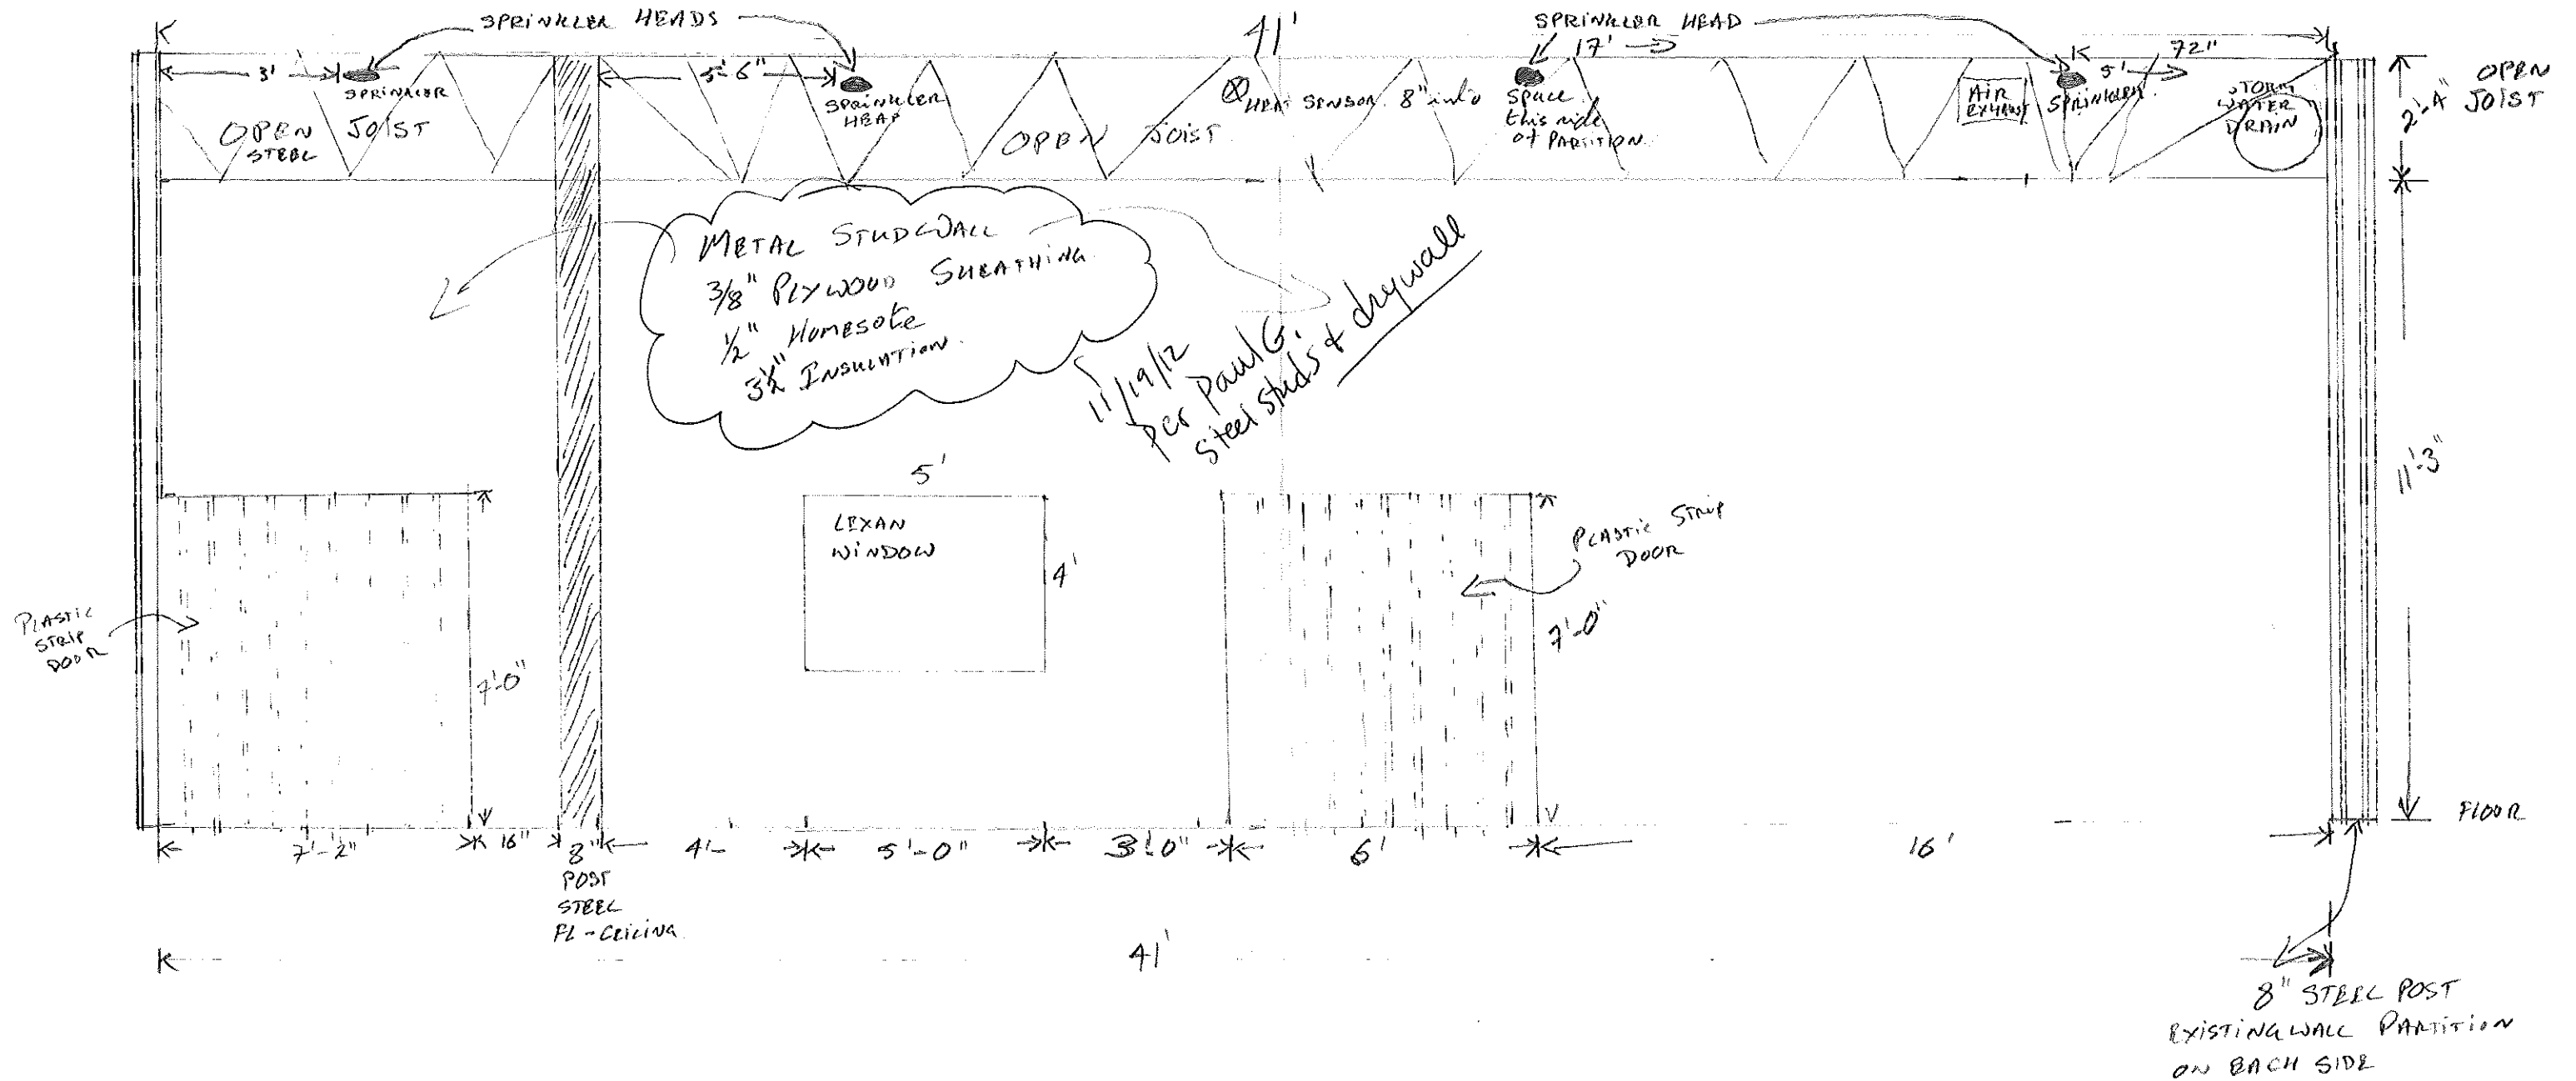 SPRINKLER HEADS
41'
SPRINKLER HEAD
17'
72"
3'
SPRINKLER
5'-6"
SPRINKLER
HEAD
HEAT SENSOR. 8" into
Space
this side
of PARTITION.
AIR
EXHAUST
5'
SPRINKLER
STORM
WATER
DRAIN
2'-4"
OPEN
JOIST
OPEN JOIST
STEEL
OPEN JOIST
METAL STUDWALL
3/8" PLYWOOD SHEATHING.
1/2" HOMESOTE
3½" INSULATION.
11/19/12
per Paul G.
steel studs & drywall
11'-3"
5'
LEXAN
WINDOW
4'
PLASTIC STRIP
DOOR
7'-0"
PLASTIC
STRIP
DOOR
7'-0"
FLOOR
7'-2"
16"
8"
4'-
5'-0"
3'-0"
6'
16'
POST
STEEL
FL-CEILING
41'
8" STEEL POST
EXISTING WALL PARTITION
ON EACH SIDE